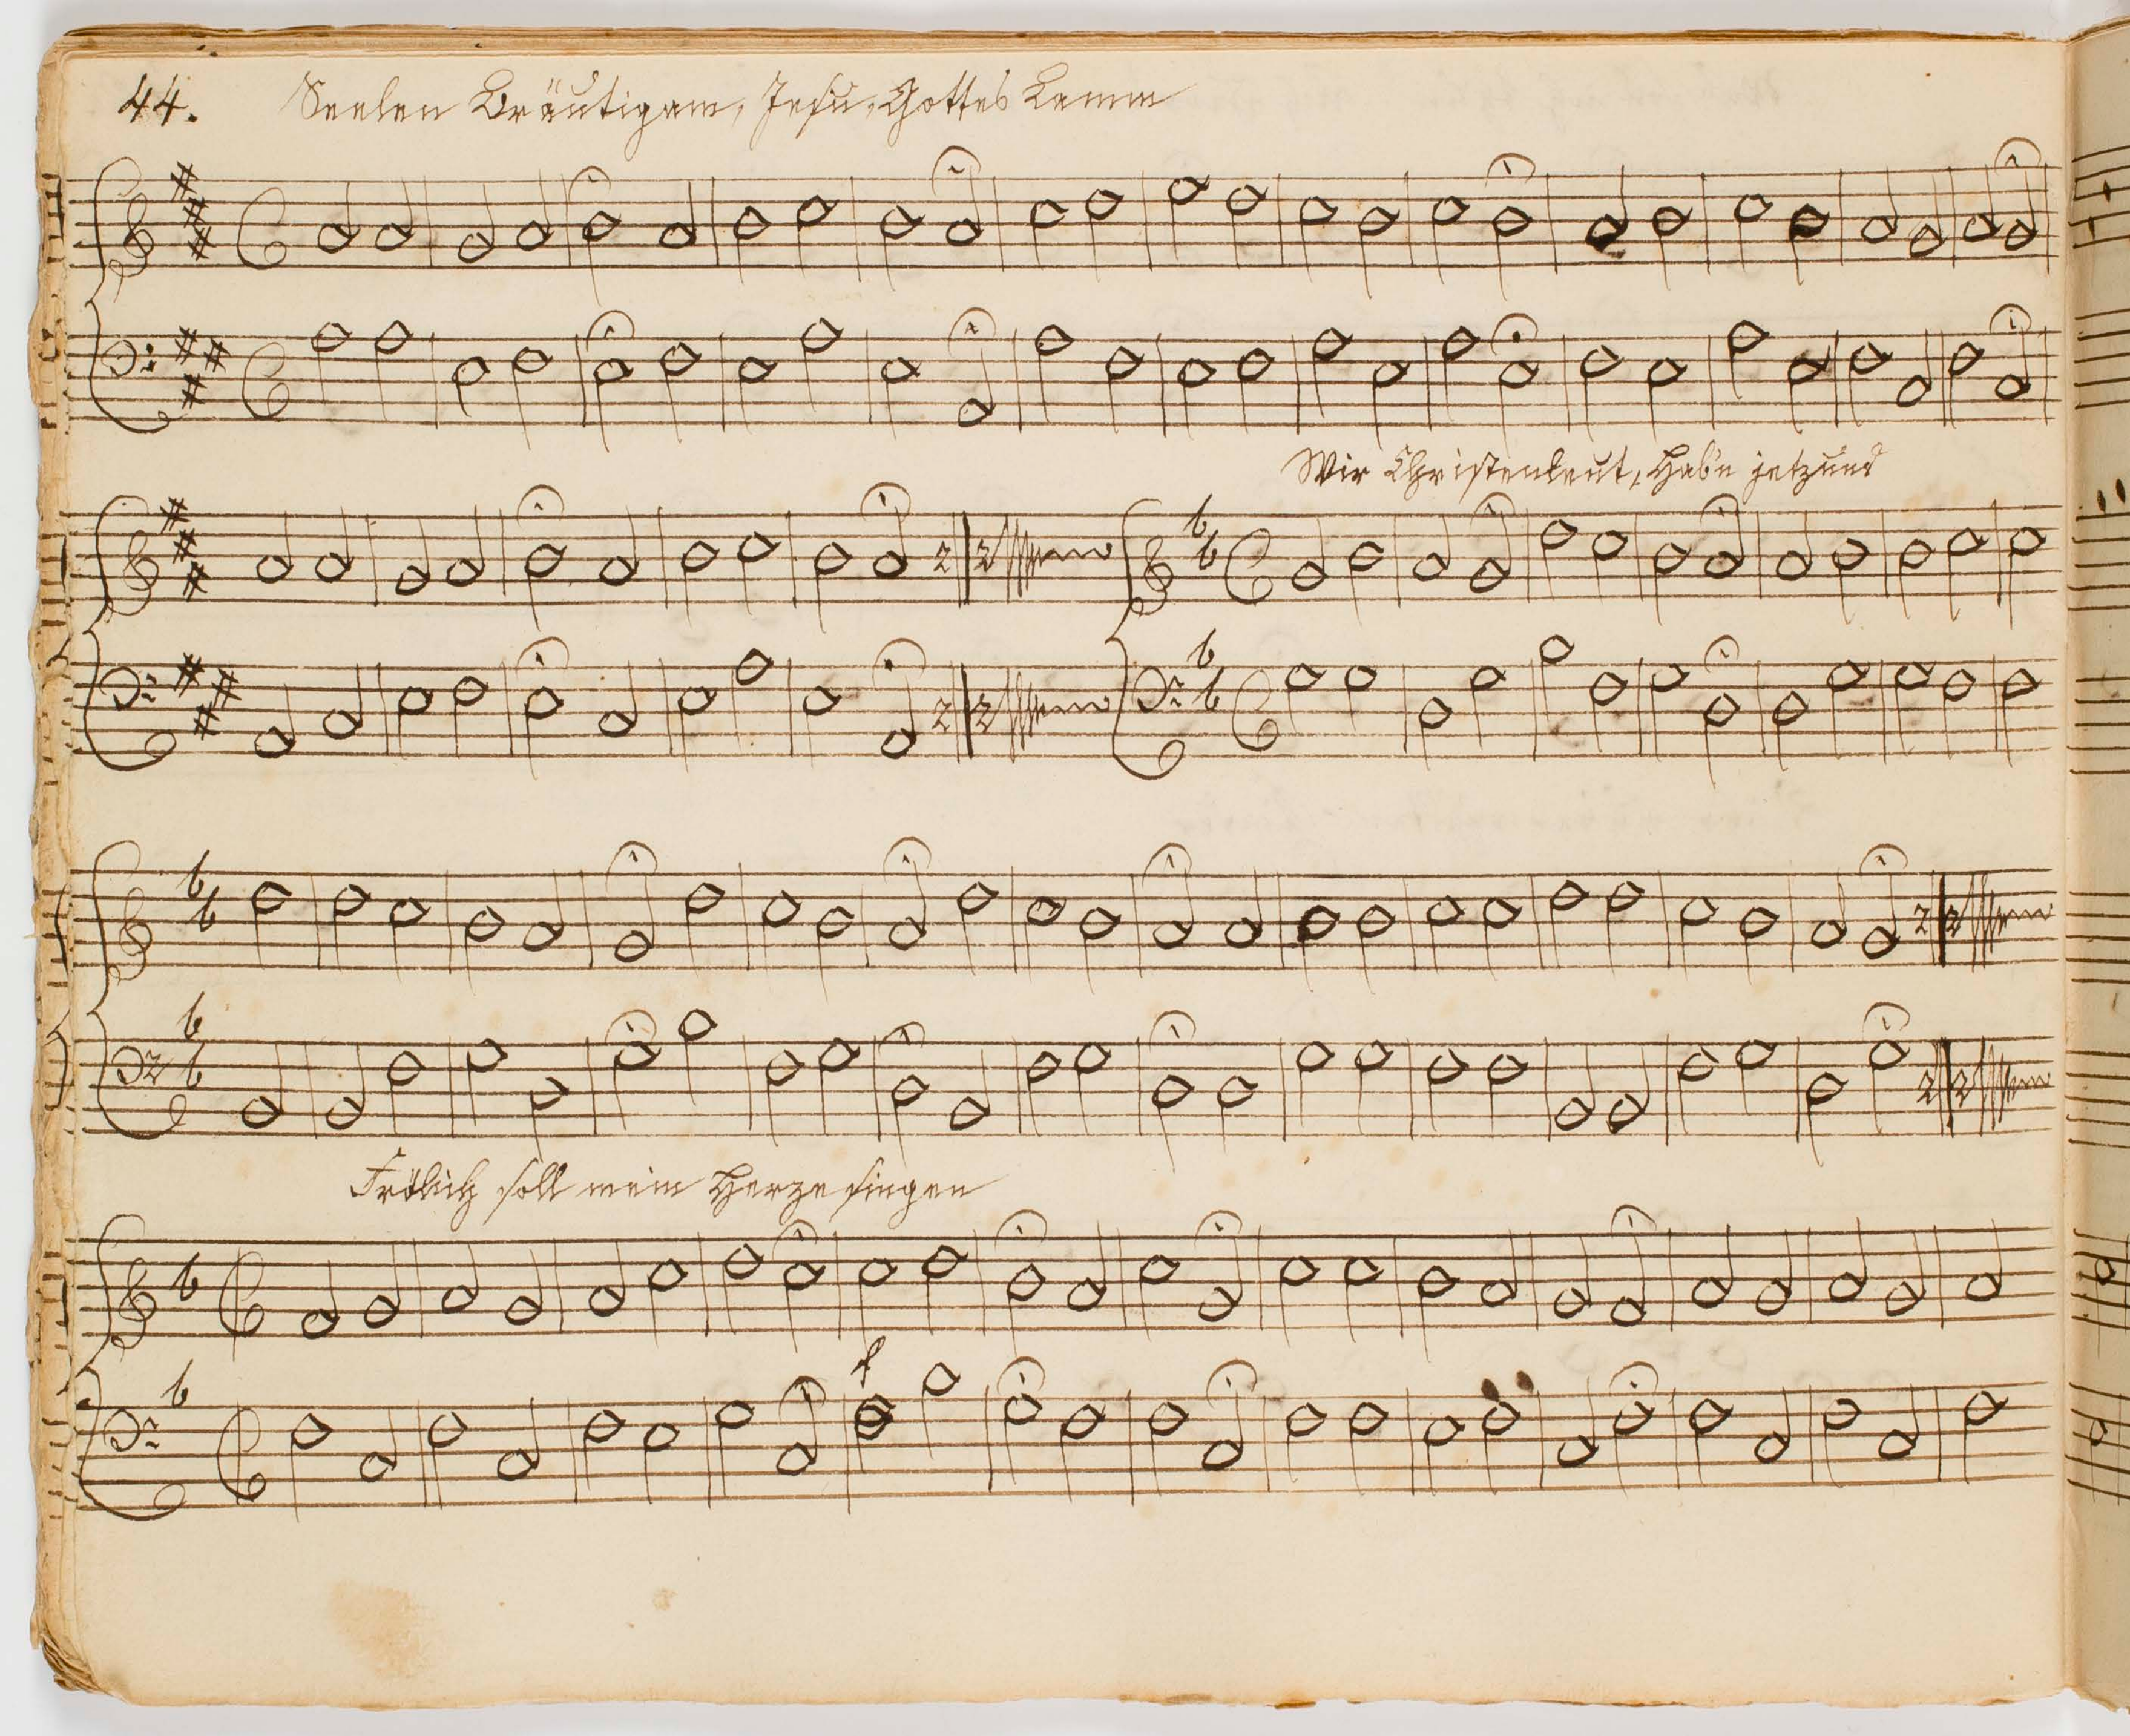 44. Seelen Bräutigam, Jesu, Gottes Lamm
Wir Christenleut, Hab'n jetzund
Frölich soll mein Herze singen